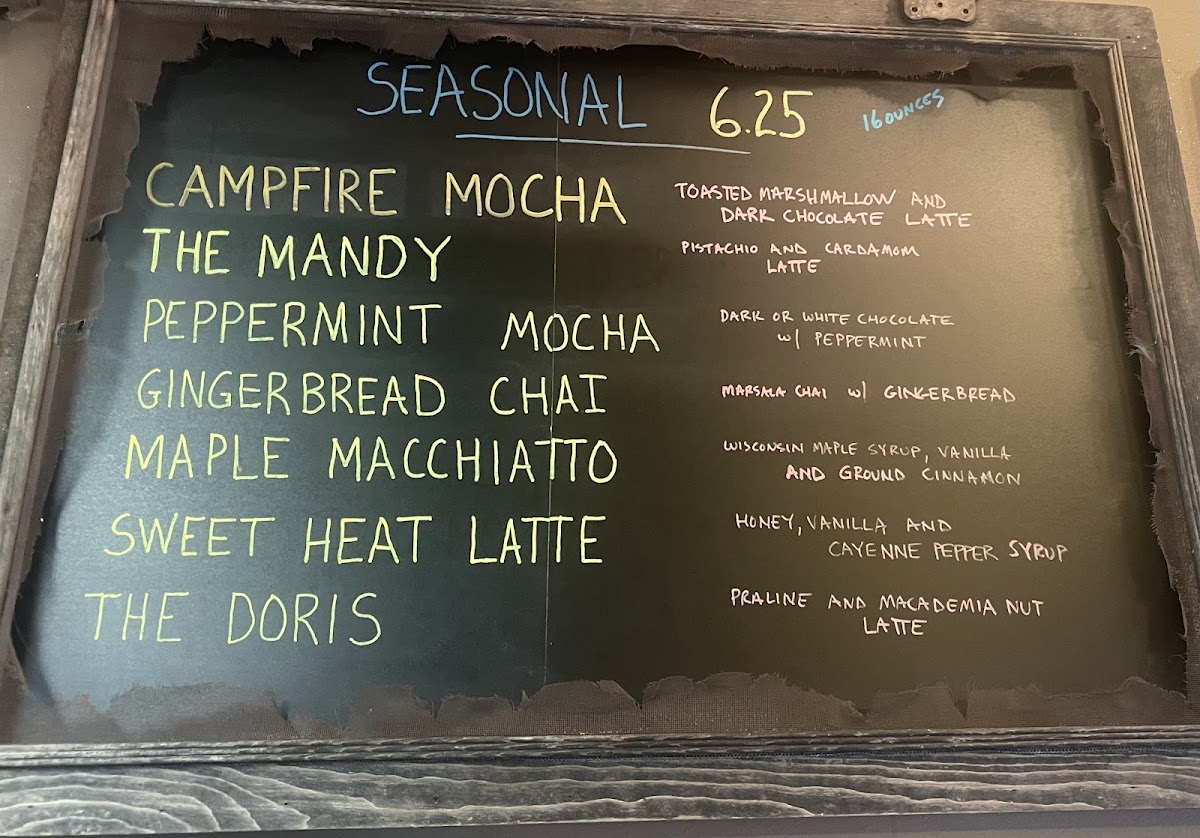 SEASONAL 6.25 16 OUNCES
CAMPFIRE MOCHA
TOASTED MARSHMALLOW AND
DARK CHOCOLATE LATTE
THE MANDY
PISTACHIO AND CARDAMOM
LATTE
PEPPERMINT MOCHA
DARK OR WHITE CHOCOLATE
W/ PEPPERMINT
GINGERBREAD CHAI
MARSALA CHAI W/ GINGERBREAD
MAPLE MACCHIATTO
WISCONSIN MAPLE SYRUP, VANILLA
AND GROUND CINNAMON
SWEET HEAT LATTE
HONEY, VANILLA AND
CAYENNE PEPPER SYRUP
THE DORIS
PRALINE AND MACADEMIA NUT
LATTE